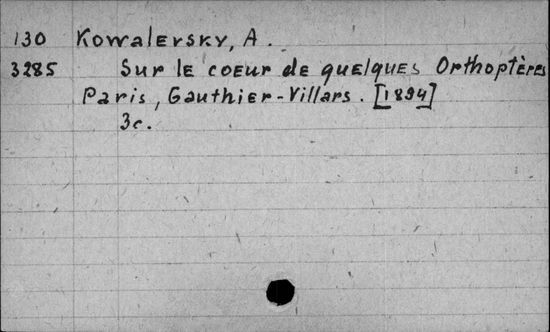 130 Kowalevsky, A.
3285 Sur le coeur de quelques Orthoptères
Paris, Gauthier-Villars. [1894]
3c.